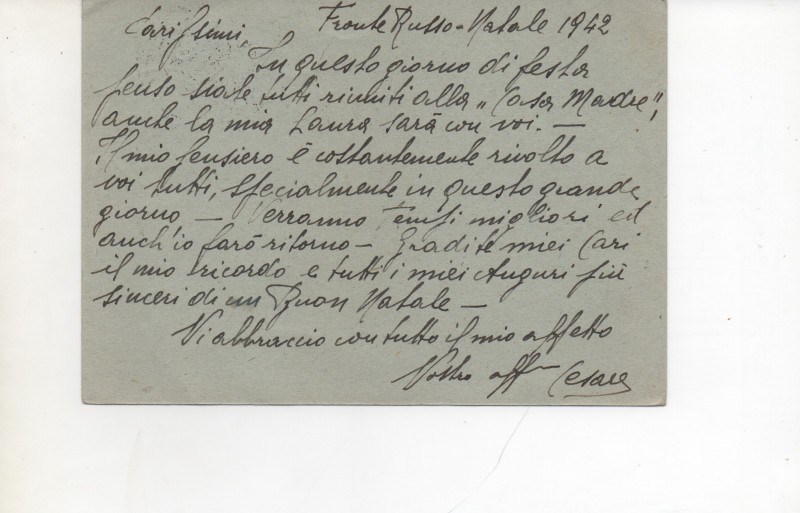 Carissimi, Fronte Russo - Natale 1942
In questo giorno di festa
penso siate tutti riuniti alla „Casa Madre",
anche la mia Laura sarà con voi. —
Il mio pensiero è costantemente rivolto a
voi tutti, specialmente in questo grande
giorno — Verranno tempi migliori ed
anch'io farò ritorno — Gradite miei Cari
il mio ricordo e tutti i miei Auguri più
sinceri di un Buon Natale —
Vi abbraccio con tutto il mio affetto
Vostro aff Cesare